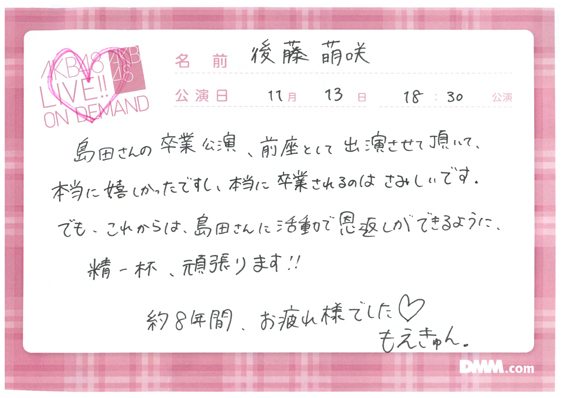 AKB48
LIVE!!
ON DEMAND
AKB
48
名前 後藤 萌咲
公演日 11月 13日 18:30 公演
島田さんの卒業公演、前座として出演させて頂いて、
本当に嬉しかったですし、本当に卒業されるのはさみしいです。
でも、これからは、島田さんに活動で恩返しができるように、
精一杯、頑張ります!!
約8年間、お疲れ様でした♡
もえきゅん。
DMM.com